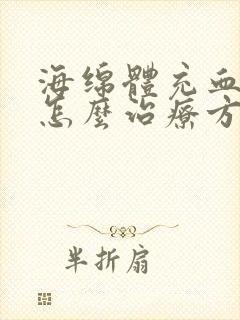 海绵體充血
怎麼治療方
半折扇